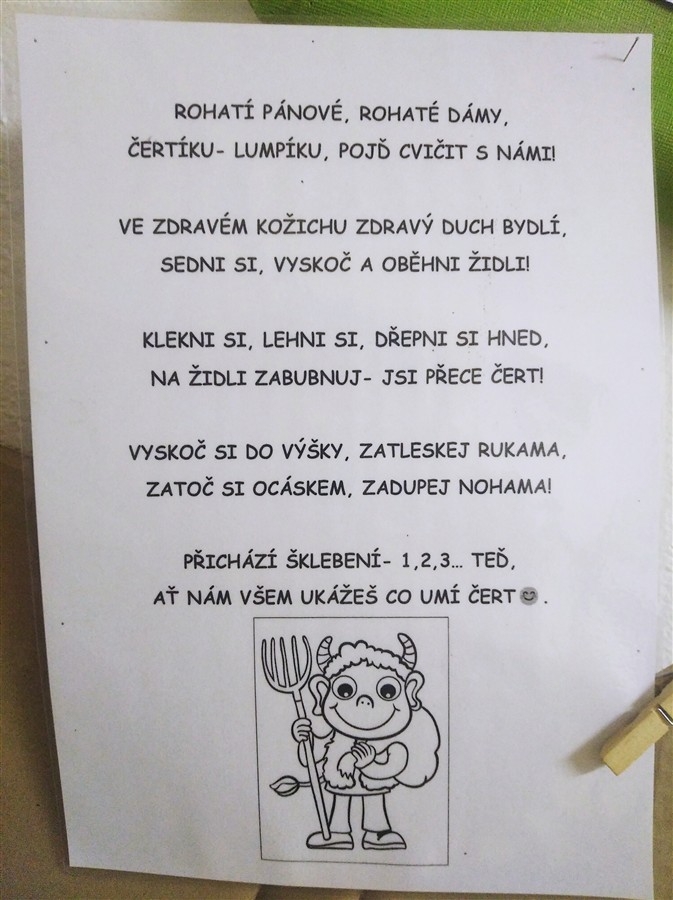 ROHATÍ PÁNOVÉ, ROHATÉ DÁMY,
ČERTÍKU- LUMPÍKU, POJĎ CVIČIT S NÁMI!
VE ZDRAVÉM KOŽICHU ZDRAVÝ DUCH BYDLÍ,
SEDNI SI, VYSKOČ A OBĚHNI ŽIDLI!
KLEKNI SI, LEHNI SI, DŘEPNI SI HNED,
NA ŽIDLI ZABUBNUJ- JSI PŘECE ČERT!
VYSKOČ SI DO VÝŠKY, ZATLESKEJ RUKAMA,
ZATOČ SI OCÁSKEM, ZADUPEJ NOHAMA!
PŘICHÁZÍ ŠKLEBENÍ- 1,2,3… TEĎ,
AŤ NÁM VŠEM UKÁŽEŠ CO UMÍ ČERT😊.